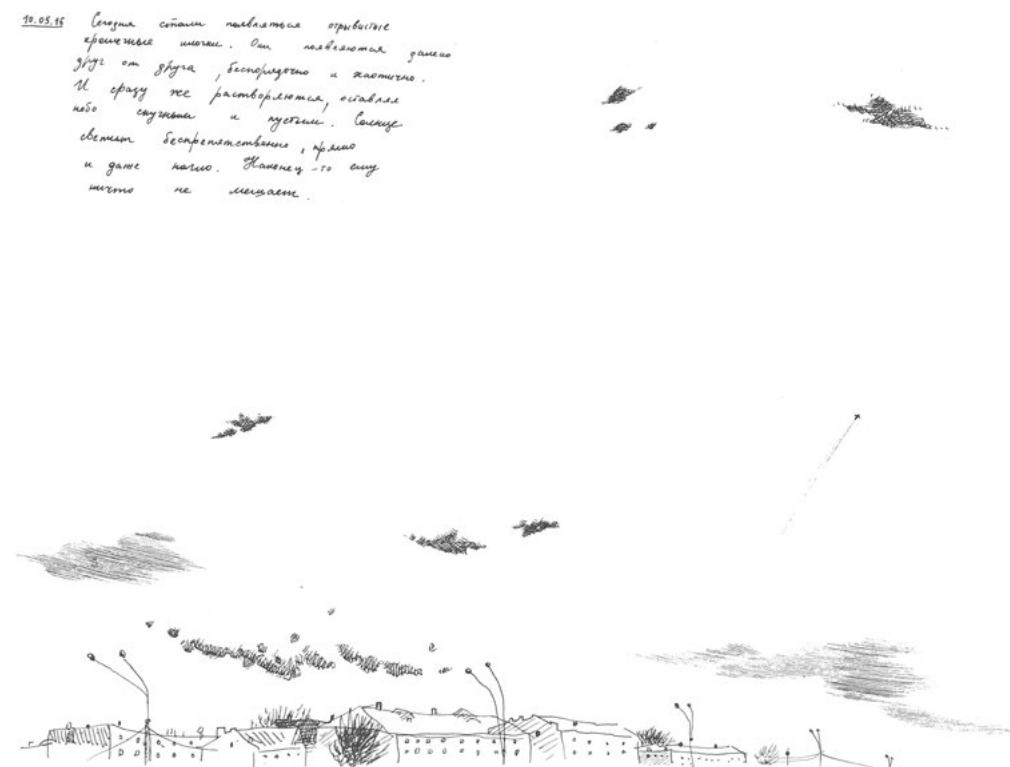 10.05.16 Сегодня стали появляться отрывистые
крошечные клочки. Они появляются далеко
друг от друга, беспорядочно и хаотично.
И сразу же растворяются, оставляя
небо скучным и пустым. Солнце
светит беспрепятственно, прямо
и даже нагло. Наконец-то ему
ничто не мешает.